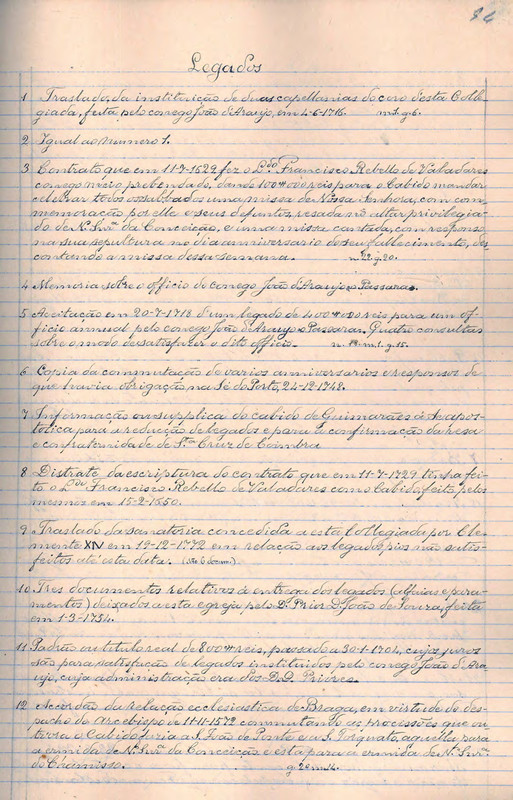 94
Legados
1 Traslado, da instituição de duas capellanias do coro d'esta Colle-
giada, feita pelo conego João d'Araujo, em 4-6-1716. m.1.g.6.
2 Igual ao numero 1.
3 Contrato que em 11-7-1629 fez o L.do Francisco Rebello de Valadares
conego meio prebendado, dando 100#000 reis para o Cabido mandar
celebrar todos os sabbados uma missa de Nossa Senhora, com com-
memoração por elle e seus defuntos, resada no altar privilegia-
do de N.ª Snr.ª da Conceição, e uma missa cantada, com responso
na sua sepultura no dia anniversario do seu fallecimento, des-
contando a missa dessa semana. g.20.
4 Memoria sobre o officio do conego João d'Araujo Passaras.
5 Aceitação em 20-7-1718 d'um legado de 400#000 reis para um of-
ficio annual pelo conego João de Araujo Passaras. Quatro consultas
sobre o modo de satisfazer o dito officio. m.1.g.15.
6 Copia da commutação de varios anniversarios e responsos de
que havia obrigação na Sé do Porto, 24-12-1742.
7 Informação ou supplica do cabido de Guimarães á Sé apos-
tolica para a reducção de legados e para a confirmação da resa
e confraternidade de S.ta Cruz de Coimbra
8 Distrate da escriptura do contrato que em 11-7-1729 tinha fei-
to o L.do Francisco Rebello de Valadares com o Cabido, feito pelos
mesmos em 15-2-1650.
9 Traslado da sanatoria concedida a esta Collegiada por Cle-
mente XIV em 19-12-1772 em relação aos legados pios não satis-
feitos até esta data. (São 6 docum.)
10 Tres documentos relativos á entrega dos legados (alfaias e para-
mentos) deixados a esta egreja pelo D. Prior D. João de Souza, feita
em 1-3-1754.
11 Padrão ou titulo real de 800# reis, passado a 30-1-1704, cujos juros
são para satisfação de legados instituidos pelo conego João d'Ara-
ujo, cuja administração era dos D. D. Priores.
12 Acordão da relação ecclesiastica de Braga, em virtude do des-
pacho do Arcebispo de 11-11-1572 commutando as procissões que ou-
trora o Cabido fazia a S. João de Ponte e a S. Torquato, aquella para
a ermida de N.ª Snr.ª da Conceição e esta para a ermida de N.ª Snr.ª
do